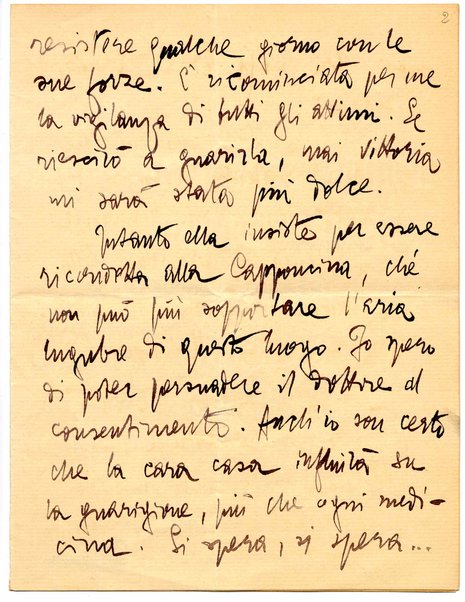 2
resistere qualche giorno con le
sue forze. È ricominciata per me
la vigilanza di tutti gli attimi. Se
riescirò a guarirla, mai vittoria
mi sarà stata più dolce.
Intanto ella insiste per essere
ricondotta alla Capponcina, ché
non può più sopportare l'aria
lugubre di questo luogo. Io spero
di poter persuadere il dottore al
consentimento. Anch'io son certo
che la cara casa influirà su
la guarigione, più che ogni medi-
cina. Si spera, si spera...